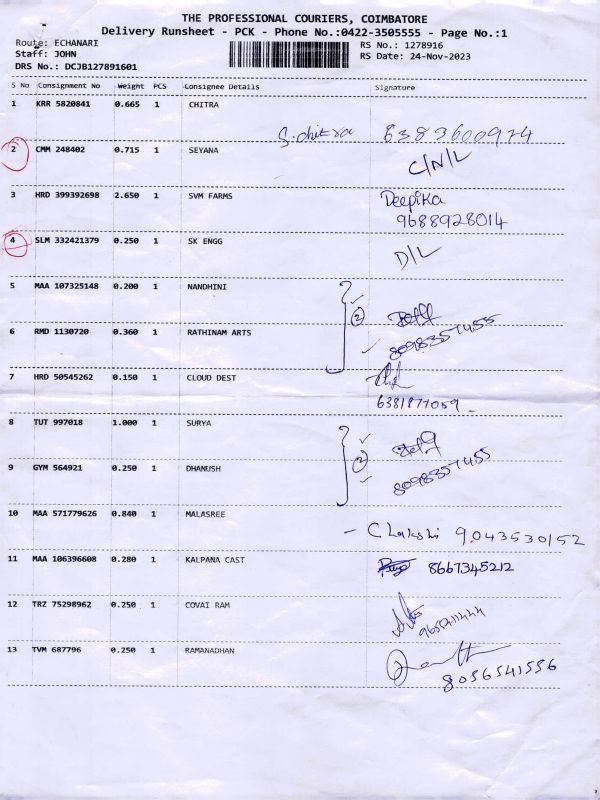 THE PROFESSIONAL COURIERS, COIMBATORE
Delivery Runsheet - PCK - Phone No.:0422-3505555 - Page No.:1
Route: ECHANARI
Staff: JOHN
DRS No.: DCJB127891601
RS No.: 1278916
RS Date: 24-Nov-2023
S No Consignment No Weight PCS Consignee Details Signature
1 KRR 5820841 0.665 1 CHITRA
S.chitra 6383600974
2 CMM 248402 0.715 1 SEYANA
C/N/L
3 HRD 399392698 2.650 1 SVM FARMS
Deepika
9688928014
4 SLM 332421379 0.250 1 SK ENGG
D/L
5 MAA 107325148 0.200 1 NANDHINI
2
6 RMD 1130720 0.360 1 RATHINAM ARTS
8098357455
7 HRD 50545262 0.150 1 CLOUD DEST
6381877059
8 TUT 997018 1.000 1 SURYA
2
9 GYM 564921 0.250 1 DHANUSH
8098357455
10 MAA 571779626 0.840 1 MALASREE
- C Lakshi 9043530152
11 MAA 106396608 0.280 1 KALPANA CAST
8667345212
12 TRZ 75298962 0.250 1 COVAI RAM
13 TVM 687796 0.250 1 RAMANADHAN
8056541556